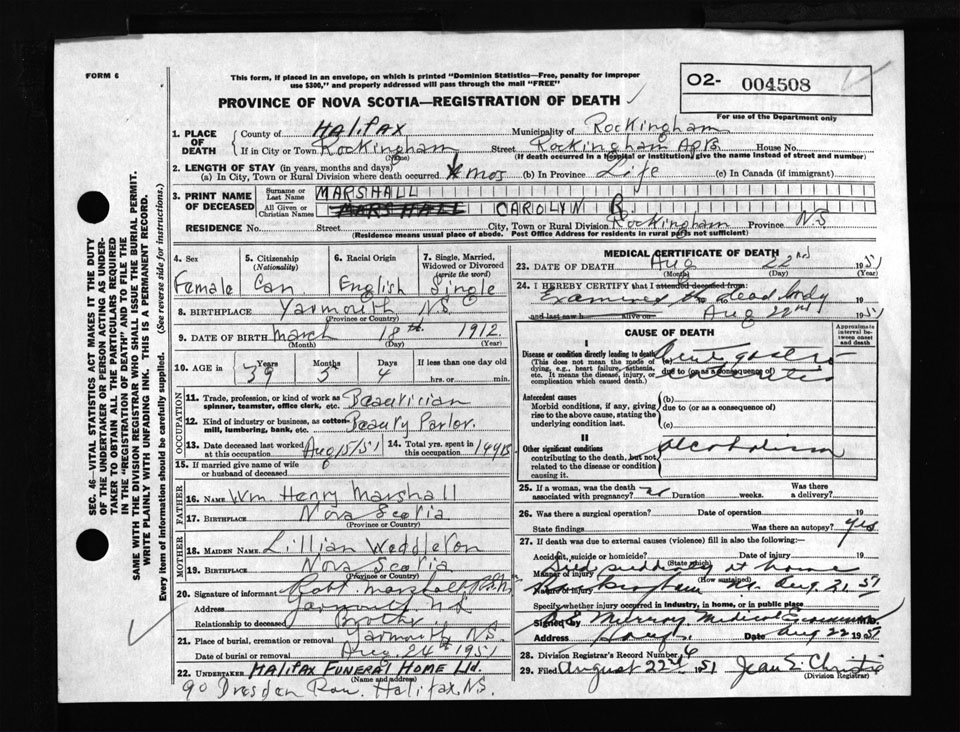 FORM 6
This form, if placed in an envelope, on which is printed "Dominion Statistics—Free, penalty for improper
use $300," and properly addressed will pass through the mail "FREE"
O2- 004508
For use of the Department only
PROVINCE OF NOVA SCOTIA—REGISTRATION OF DEATH
SEC. 46—VITAL STATISTICS ACT MAKES IT THE DUTY
OF THE UNDERTAKER OR PERSON ACTING AS UNDER-
TAKER TO OBTAIN ALL THE PARTICULARS REQUIRED
IN THE "REGISTRATION OF DEATH" AND TO FILE THE
SAME WITH THE DIVISION REGISTRAR WHO SHALL ISSUE THE BURIAL PERMIT.
WRITE PLAINLY WITH UNFADING INK. THIS IS A PERMANENT RECORD.
Every item of information should be carefully supplied. (See reverse side for instructions.)
1. PLACE OF DEATH
County of Halifax Municipality of Rockingham
If in City or Town Rockingham Street Rockingham Apts. House No.
(Name) (If death occurred in a hospital or institution, give the name instead of street and number)
2. LENGTH OF STAY (in years, months and days)
(a) In City, Town or Rural Division where death occurred mos (b) In Province Life (c) In Canada (if immigrant)
3. PRINT NAME OF DECEASED
Surname or Last Name MARSHALL
All Given or Christian Names MARSHALL CAROLYN B.
RESIDENCE No. Street City, Town or Rural Division Rockingham Province N.S.
(Residence means usual place of abode. Post Office Address for residents in rural parts not sufficient)
4. Sex Female
5. Citizenship (Nationality) Can
6. Racial Origin English
7. Single, Married, Widowed or Divorced (write the word) Single
8. BIRTHPLACE Yarmouth N.S.
(Province or Country)
9. DATE OF BIRTH March 18th 1912
(Month) (Day) (Year)
10. AGE in Years Months Days If less than one day old
39 5 4 hrs. or min.
OCCUPATION
11. Trade, profession, or kind of work as spinner, teamster, office clerk, etc. Beautician
12. Kind of industry or business, as cotton-mill, lumbering, bank, etc. Beauty Parlor.
13. Date deceased last worked at this occupation Aug 15/51
14. Total yrs. spent in this occupation 14 yrs
15. If married give name of wife or husband of deceased
FATHER
16. NAME Wm. Henry Marshall
17. BIRTHPLACE Nova Scotia
(Province or Country)
MOTHER
18. MAIDEN NAME Lillian Weddleton
19. BIRTHPLACE Nova Scotia
(Province or Country)
20. Signature of informant Robt. Marshall
Address Yarmouth N.S.
Relationship to deceased Brother
21. Place of burial, cremation or removal Yarmouth, N.S.
Date of burial or removal Aug. 24th 1951
22. UNDERTAKER Halifax Funeral Home Ltd.
(Name and address)
90 Dresden Row. Halifax, N.S.
MEDICAL CERTIFICATE OF DEATH
23. DATE OF DEATH Aug 22nd 1951
(Month) (Day) (Year)
24. I HEREBY CERTIFY that I attended deceased from:
Examined the dead body
and last saw h alive on Aug 22nd 1951
CAUSE OF DEATH
Approximate interval between onset and death
I
Disease or condition directly leading to death
(This does not mean the mode of dying, e.g., heart failure, asthenia, etc. It means the disease, injury, or complication which caused death.)
(a) Acute gastro
due to (or as a consequence of)
Antecedent causes
Morbid conditions, if any, giving rise to the above cause, stating the underlying condition last.
(b)
due to (or as a consequence of)
(c)
II
Other significant conditions
contributing to the death, but not related to the disease or condition causing it. alcoholism
25. If a woman, was the death associated with pregnancy? Duration weeks. Was there a delivery?
26. Was there a surgical operation? Date of operation 19
State findings Was there an autopsy? yes
27. If death was due to external causes (violence) fill in also the following:
Accident, suicide or homicide? Date of injury 19
(State which)
Manner of injury Died suddenly at home
(How sustained)
Nature of injury Rockingham N.S. Aug. 21. 51
Specify whether injury occurred in industry, in home, or in public place
Signed by Murray Medical Examiner
Address Date Aug 22 1951
28. Division Registrar's Record Number 6
29. Filed August 22nd 1951 Jean E. Christie
(Division Registrar)